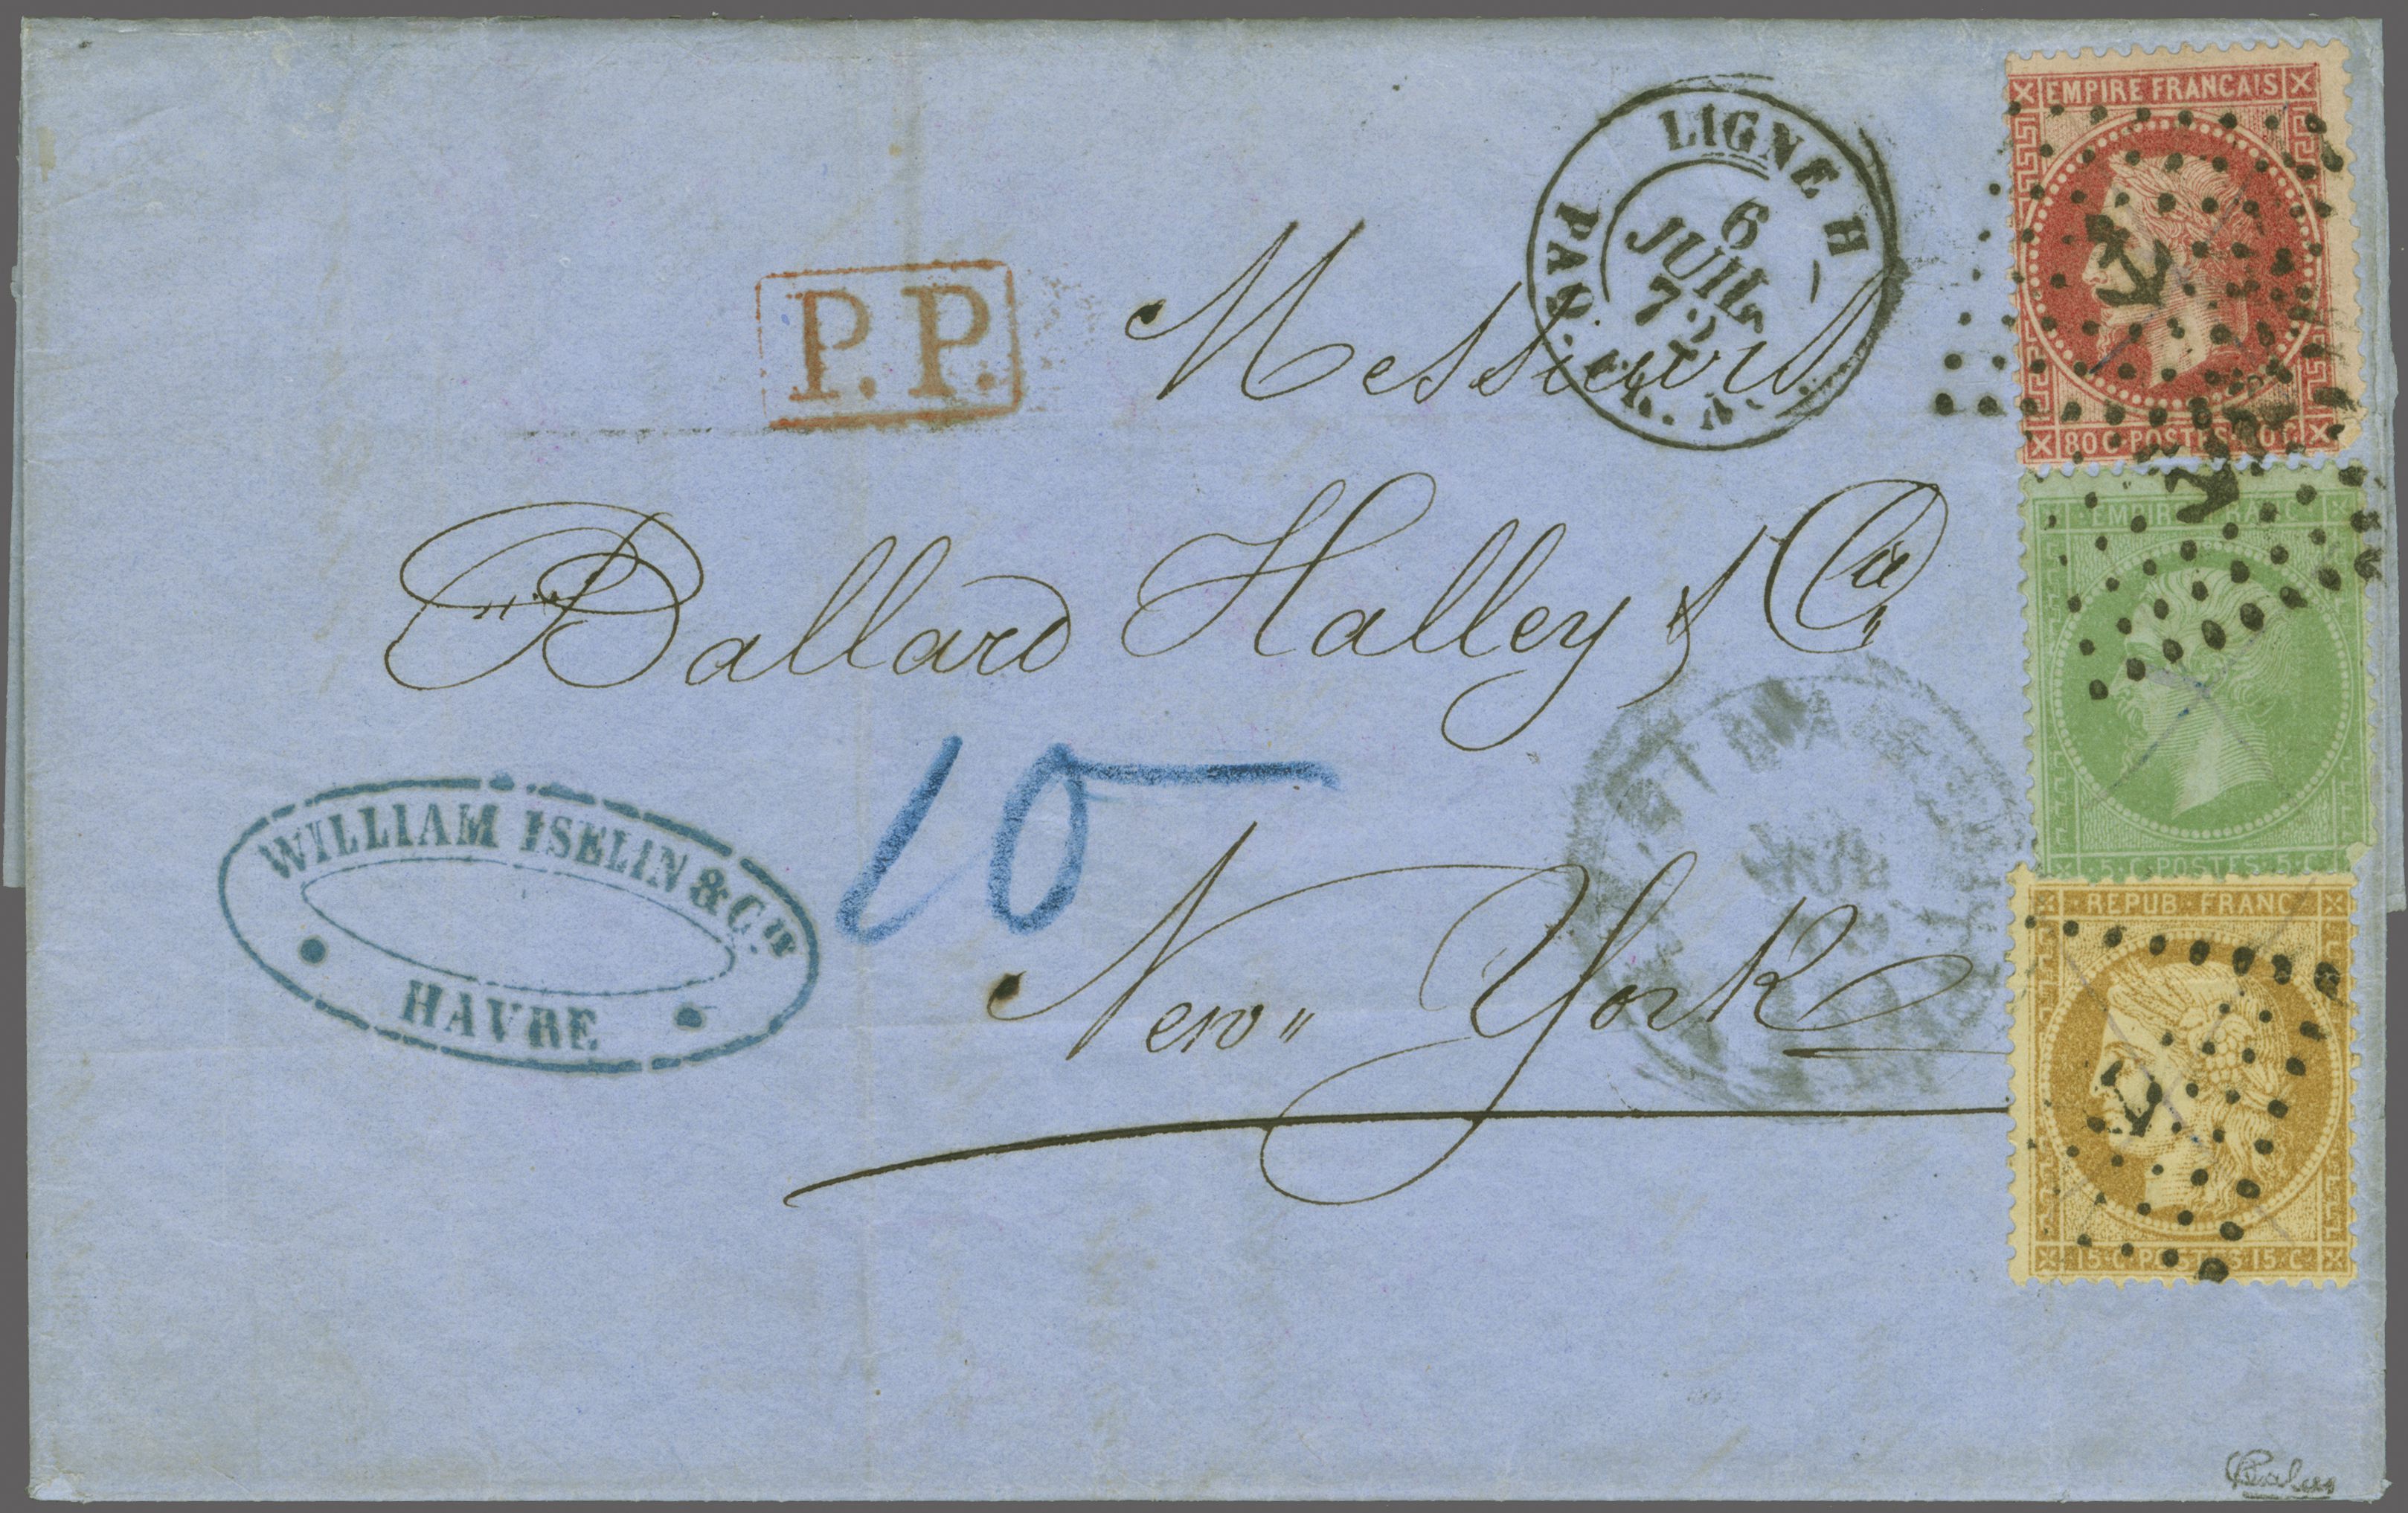 LIGNE H
6
JUIL
72
PAQ. FR. N.
P.P.
Messieurs
Ballard Halley & Cie
10
New York
WILLIAM ISELIN & CIE
HAVRE
EMPIRE FRANCAIS
80 C POSTES 80 C
EMPIRE FRANC
5 C POSTES 5 C
REPUB FRANC
15 C POSTES 15 C